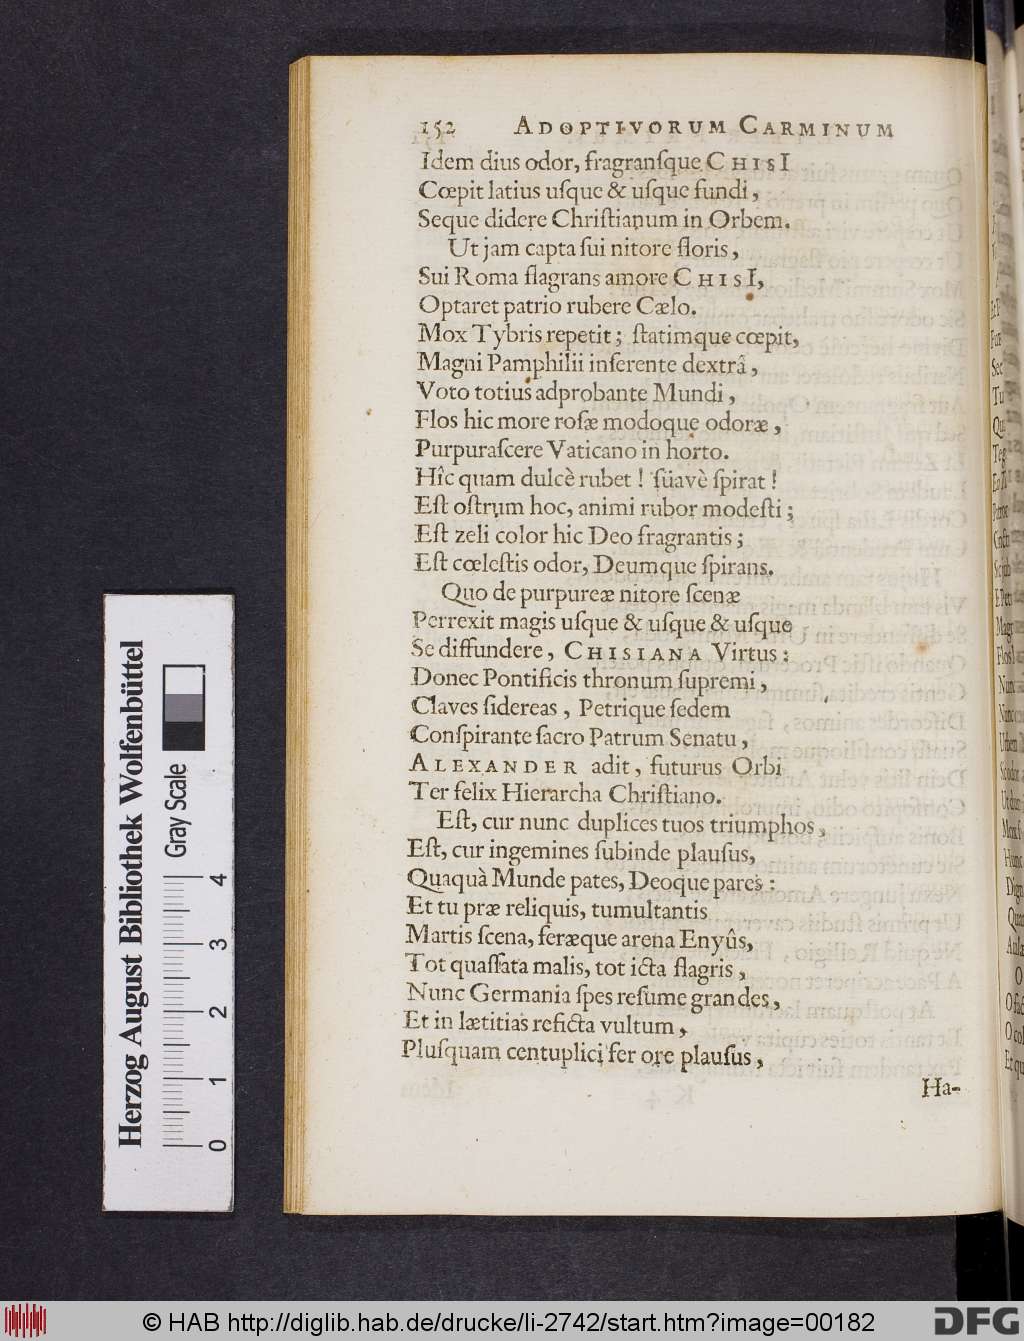 152 ADOPTIVORUM CARMINUM
Idem dius odor, fragranſque CHISI
Cœpit latius uſque & uſque fundi,
Seque didere Chriſtianum in Orbem.
Ut jam capta ſui nitore floris,
Sui Roma flagrans amore CHISI,
Optaret patrio rubere Cælo.
Mox Tybris repetit; ſtatimque cœpit,
Magni Pamphilii inſerente dextrâ,
Voto totius adprobante Mundi,
Flos hic more roſæ modoque odoræ,
Purpuraſcere Vaticano in horto.
Hîc quam dulcè rubet! ſüavè ſpirat!
Eſt oſtrum hoc, animi rubor modeſti;
Eſt zeli color hic Deo fragrantis;
Eſt cœleſtis odor, Deumque ſpirans.
Quo de purpureæ nitore ſcenæ
Perrexit magis uſque & uſque & uſque
Se diffundere, CHISIANA Virtus:
Donec Pontificis thronum ſupremi,
Claves ſidereas, Petrique ſedem
Conſpirante ſacro Patrum Senatu,
ALEXANDER adit, futurus Orbi
Ter felix Hierarcha Chriſtiano.
Eſt, cur nunc duplices tuos triumphos,
Eſt, cur ingemines ſubinde plauſus,
Quaquà Munde pates, Deoque pares:
Et tu præ reliquis, tumultantis
Martis ſcena, feræque arena Enyûs,
Tot quaſſata malis, tot icta flagris,
Nunc Germania ſpes reſume grandes,
Et in lætitias reficta vultum,
Pluſquam centuplici fer ore plauſus,
Ha-
Herzog August Bibliothek Wolfenbüttel
Gray Scale
0 1 2 3 4
© HAB http://diglib.hab.de/drucke/li-2742/start.htm?image=00182
DFG